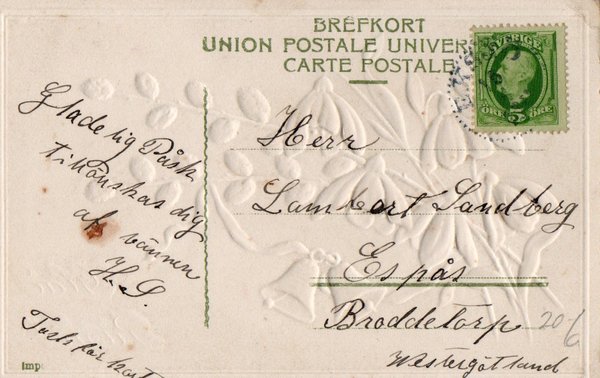 BREFKORT
UNION POSTALE UNIVER
CARTE POSTALE
SVERIGE
5
ÖRE ÖRE
Gladelig Påsk
tillönskas dig
af vännen
H.S.
kort
Herr
Lambert Sandberg
Espås
Broddetorp
Westergötland
20-6
Imp